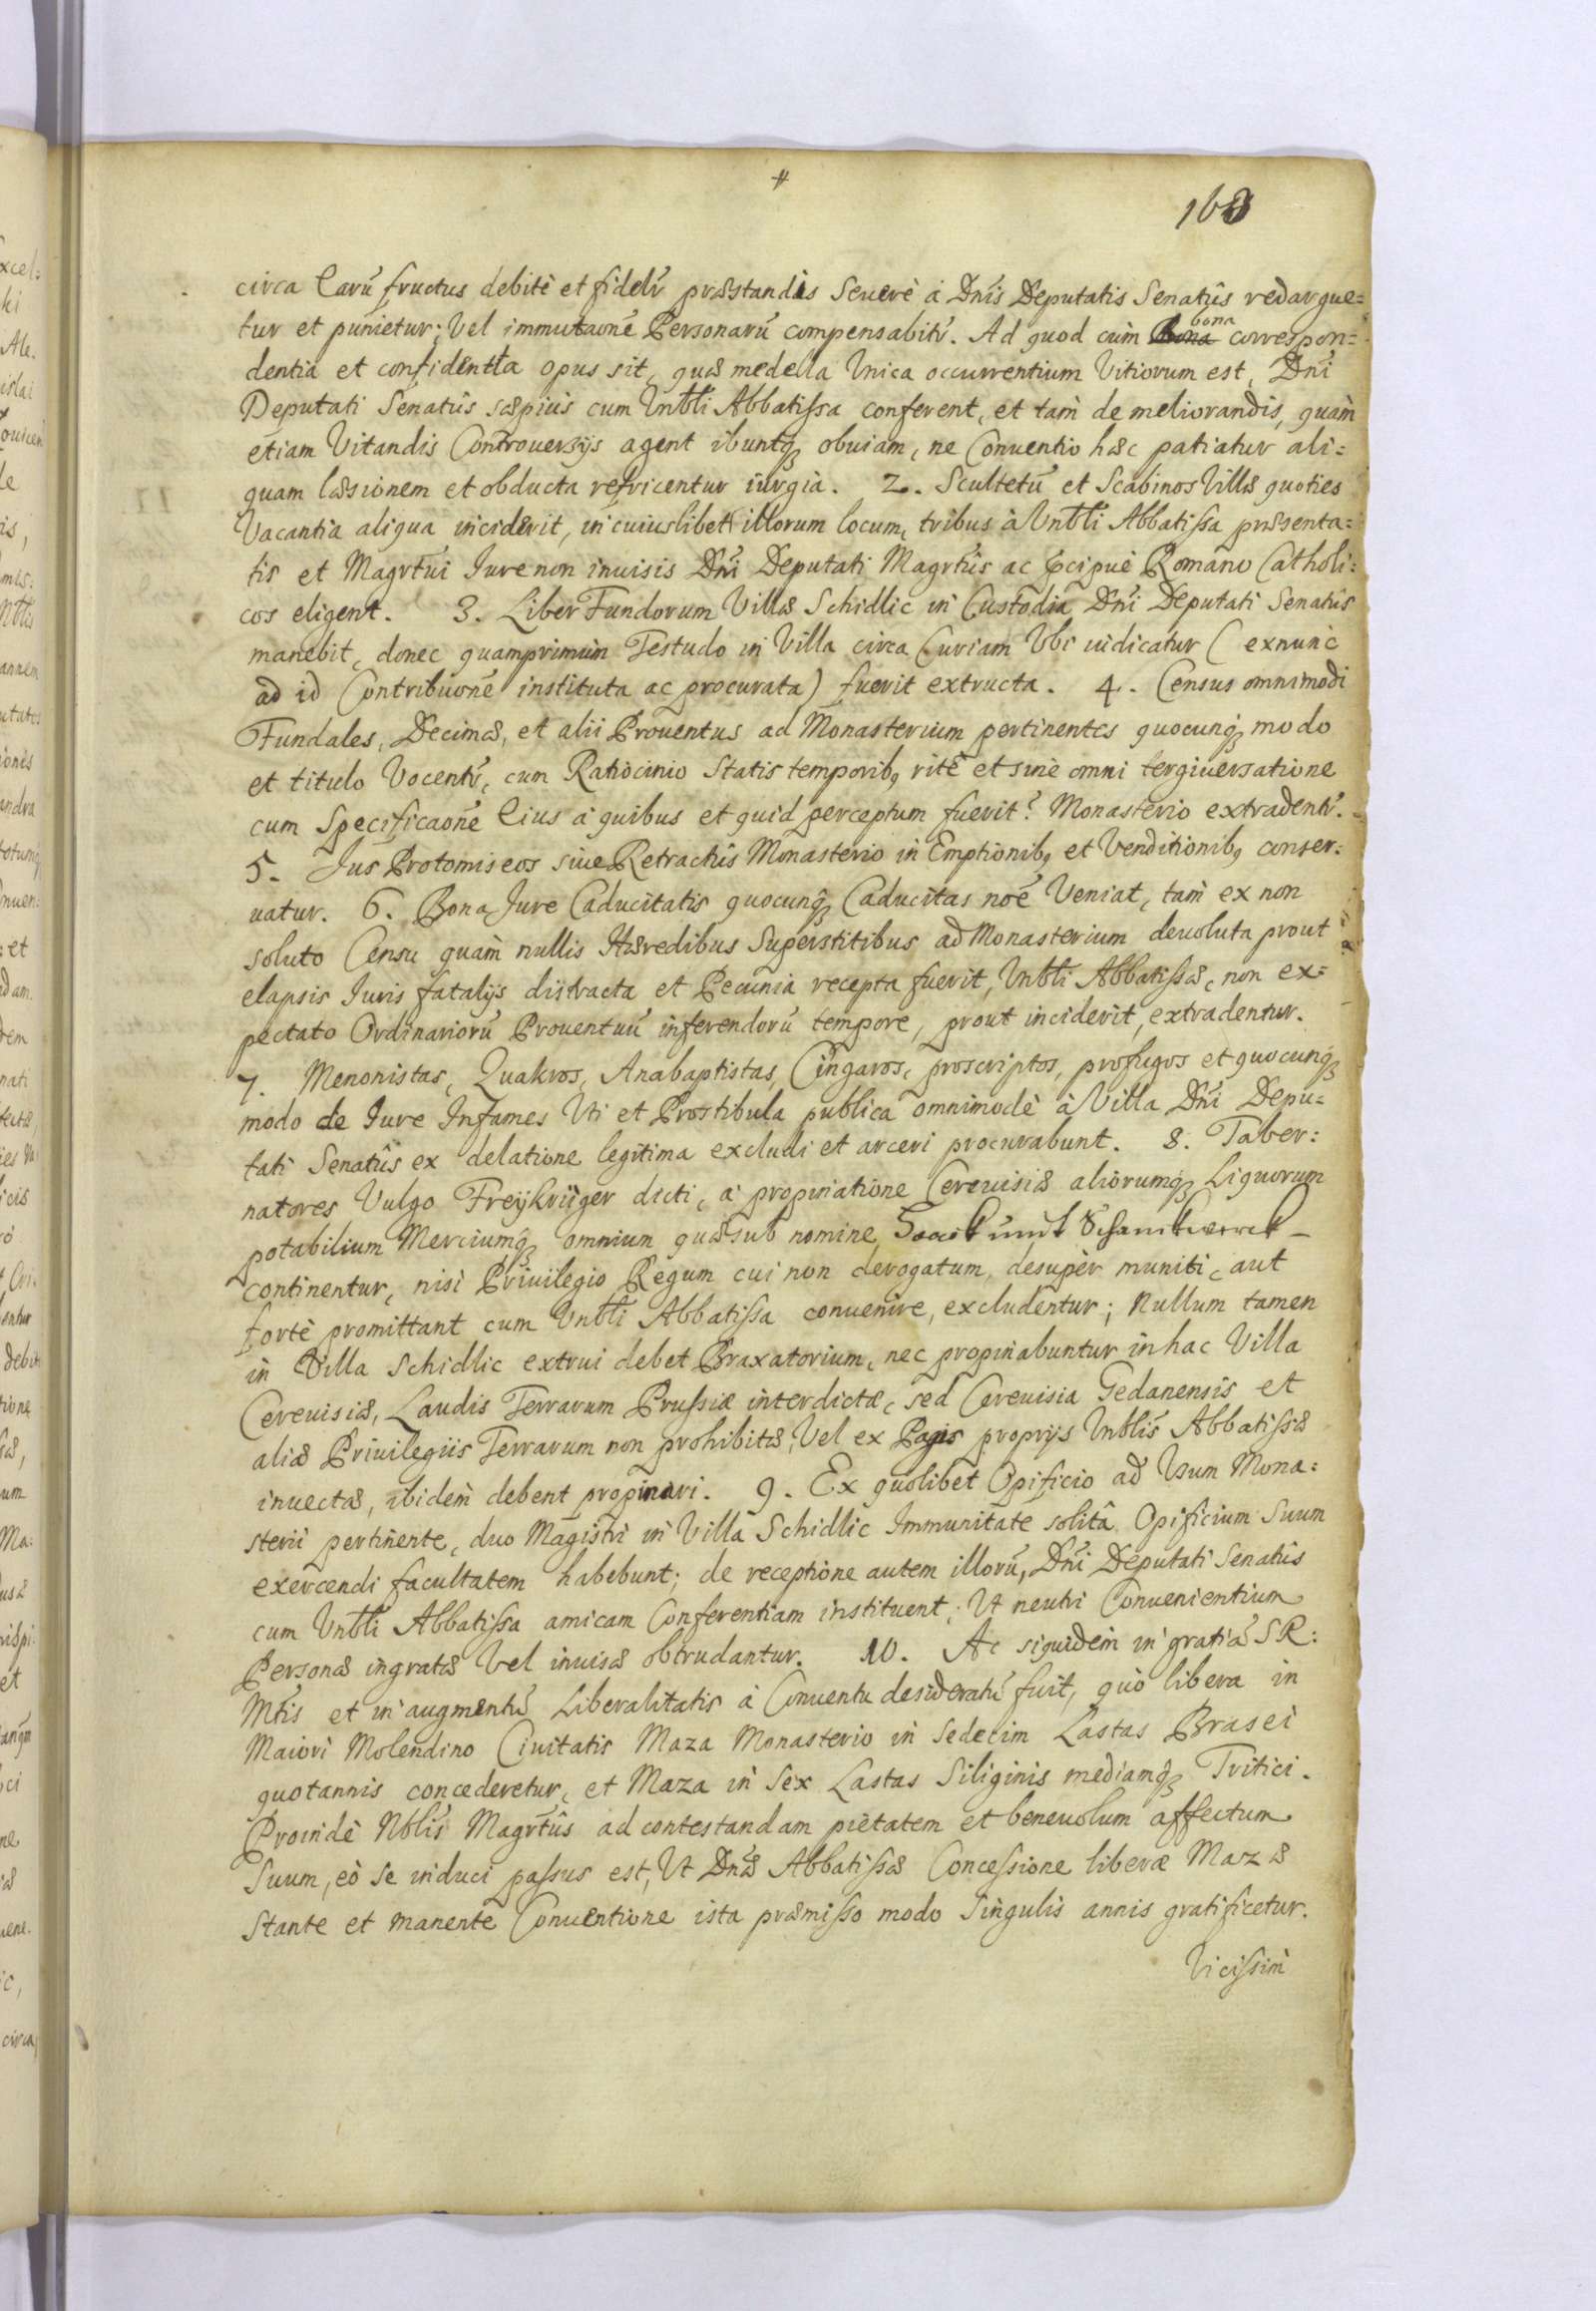 #
163
circa Earū fructus debitè et fidelr̄ præstandos Seuerè à Dnīs Deputatis Senatûs redargue=
tur et punietur; Vel immutaonē Personarū compensabitr̄. Ad quod cùm bona correspon=
dentia et confidentia opus sit, quæ medela Vnica occurrentium Vitiorum est, Dnī
Deputati Senatûs sæpiùs cum Vnblī Abbatissa conferent, et tam de meliorandis, quàm
etiam Vitandis Controuersijs agent ibuntq₃ obuiam, ne Conuentio hæc patiatur ali=
quam læsionem et obducta refricentur iurgia. 2. Scultetū et Scabinos Villæ quoties
Vacantia aliqua inciderit, in cuiuslibet illorum locum, tribus à Vnblī Abbatissa præsenta=
tis et Magrtūi Iure non inuisis Dnī Deputati Magrtūs ac p̄cipuè Romano Catholi=
cos eligent. 3. Liber Fundorum Villæ Schidlic in Custodia Dnī Deputati Senatûs
manebit, donec quamprimùm Testudo in Villa circa Curiam Vbi iudicatur (exnunc
ad id Contribuonē instituta ac procurata) fuerit extructa. 4. Census omnimodi
Fundales, Decimæ, et alii Prouentus ad Monasterium pertinentes quocunq₃ modo
et titulo Vocentr̄, cum Ratiocinio Statis temporib₉ ritè et sine omni tergiuersatione
cum Specificaonē Eius à quibus et quid perceptum fuerit? Monasterio extradentr̄.
5. Jus Protomiseos siue Retractûs Monasterio in Emptionib₉ et Venditionib₉ conser=
uatur. 6. Bona Jure Caducitatis quocunq₃ Caducitas noē Veniat, tam ex non
soluto Censu quàm nullis Hæredibus Superstitibus ad Monasterium deuoluta prout
elapsis Iuris fatalijs distracta et Pecunia recepta fuerit, Vnblī Abbatissæ, non ex=
pectato Ordinariorū Prouentuū inferendorū tempore, prout inciderit, extradentur.
7. Menonistas, Quakros, Anabaptistas, Cingaros, proscriptos, profugos et quocunq₃
modo de Iure Infames Vti et Prostibula publica omnimodè à Villa Dnī Depu=
tati Senatûs ex delatione legitima excludi et arceri procurabunt. 8. Taber=
natores Vulgo Freijkrüger dicti, à propinatione Cereuisiæ aliorumq₃ Liquorum
potabilium Merciumq₃ omnium quæ sub nomine Haack unndt Schanckwerck
continentur, nisi Priuilegio Regum cui non derogatum, desuper muniti, aut
fortè promittant cum Vnblī Abbatissa conuenire, excludentur; Nullum tamen
in Villa Schidlic extrui debet Braxatorium, nec propinabuntur in hac Villa
Cereuisiæ, Laudis Terrarum Prussiæ interdictæ, sed Cereuisia Gedanensis et
aliæ Priuilegiis Terrarum non prohibitæ, Vel ex Pagis proprijs Vnblīs Abbatissæ
inuectæ, ibidem debent propinari. 9. Ex quolibet Opificio ad Vsum Mona=
sterii pertinente, duo Magistri in Villa Schidlic Immunitate solitâ Opificium Suum
exercendi facultatem habebunt; de receptione autem illorū, Dnī Deputati Senatûs
cum Vnblī Abbatissa amicam Conferentiam instituent; Vt neutri Conuenientium
Personæ ingratæ Vel inuisæ obtrudantur. 10. Ac siquidem in gratiā SR:
Mtīs et in augmentū Liberalitatis à Conuentu desideratū fuit, quò libera in
Maiori Molendino Ciuitatis Maza Monasterio in Sedecim Lastas Brasei
quotannis concederetur, et Maza in Sex Lastas Siliginis mediamq₃ Tritici.
Proindè Nblīs Magrtūs ad contestandam pietatem et beneuolum affectum
Suum, eò se induci passus est, Vt Dnæ Abbatissæ Concessione liberæ Mazæ
Stante et manente Conuentione ista præmisso modo Singulis annis gratificetur.
Vicissim